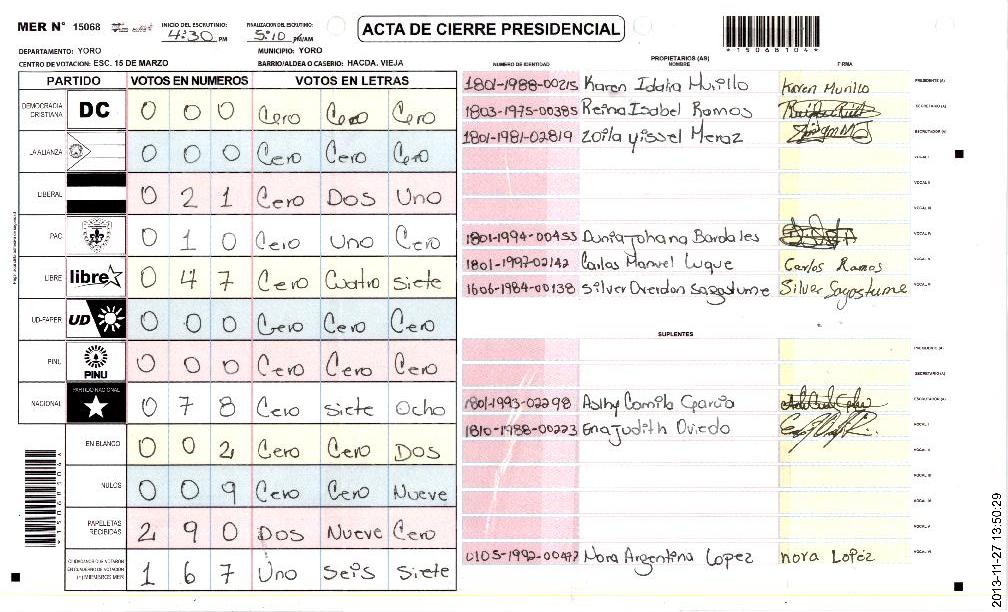 MER Nº 15068
INICIO DEL ESCRUTINIO: 4:30 PM
FINALIZACION DEL ESCRUTINIO: 5:10 PM/AM
ACTA DE CIERRE PRESIDENCIAL
*15068104*
DEPARTAMENTO: YORO
MUNICIPIO: YORO
CENTRO DE VOTACION: ESC. 15 DE MARZO
BARRIO/ALDEA O CASERIO: HACDA. VIEJA
PARTIDO VOTOS EN NUMEROS VOTOS EN LETRAS
DEMOCRACIA CRISTIANA DC 0 0 0 Cero Cero Cero
LA ALIANZA 0 0 0 Cero Cero Cero
LIBERAL 0 2 1 Cero Dos Uno
PAC 0 1 0 Cero Uno Cero
LIBRE libre 0 4 7 Cero Cuatro Siete
UD-FAPER UD 0 0 0 Cero Cero Cero
PINU PINU 0 0 0 Cero Cero Cero
NACIONAL PARTIDO NACIONAL 0 7 8 Cero Siete Ocho
EN BLANCO 0 0 2 Cero Cero Dos
NULOS 0 0 9 Cero Cero Nueve
PAPELETAS RECIBIDAS 2 9 0 Dos Nueve Cero
CIUDADANOS QUE VOTARON EN CUADERNO DE VOTACION (+) MIEMBROS MER 1 6 7 Uno Seis Siete
PROPIETARIOS (AS)
NUMERO DE IDENTIDAD NOMBRE FIRMA
1801-1988-00215 Karen Idalia Murillo Karen Murillo PRESIDENTE (A)
1803-1975-00385 Reina Isabel Ramos SECRETARIO (A)
1801-1981-02819 Zoila yissel Meraz ESCRUTADOR (A)
VOCAL I
VOCAL II
VOCAL III
1801-1994-00453 Dunia Johana Bardales VOCAL IV
1801-1997-02142 Carlos Manuel Luque Carlos Ramos VOCAL V
1606-1984-00138 Silver Overdan Sagastume Silver Sagastume
SUPLENTES
PRESIDENTE (A)
SECRETARIO (A)
1801-1993-02298 Aslhy Camila Garcia ESCRUTADOR (A)
1810-1988-00223 Ena Judith Oviedo VOCAL I
VOCAL II
VOCAL III
VOCAL IV
VOCAL V
0105-1992-00447 Nora Argentina Lopez nora Lopez VOCAL VI
*15068104*
2013-11-27 13:50:29